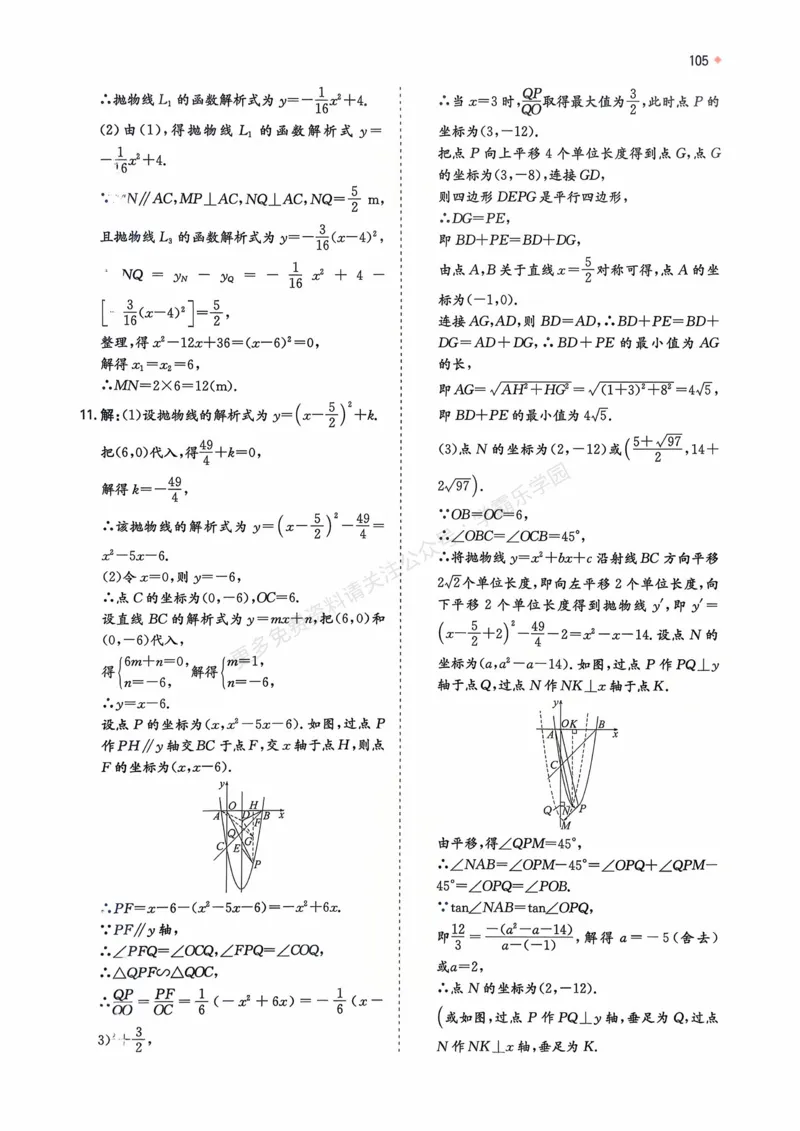 105
∴抛物线 L₁ 的函数解析式为 y=-1/16x²+4.
(2)由(1),得抛物线 L₁ 的函数解析式 y=
-1/16x²+4.
N∥AC,MP⊥AC,NQ⊥AC,NQ=5/2 m,
且抛物线 L₃ 的函数解析式为 y=-3/16(x-4)²,
NQ = y_N - y_Q = -1/16 x² + 4 -
[-3/16(x-4)²]=5/2,
整理,得 x²-12x+36=(x-6)²=0,
解得 x₁=x₂=6,
∴MN=2×6=12(m).
11.解:(1)设抛物线的解析式为 y=(x-5/2)²+k.
把(6,0)代入,得49/4+k=0,
解得 k=-49/4,
∴该抛物线的解析式为 y=(x-5/2)²-49/4=
x²-5x-6.
(2)令 x=0,则 y=-6,
∴点 C 的坐标为(0,-6),OC=6.
设直线 BC 的解析式为 y=mx+n,把(6,0)和
(0,-6)代入,
得{6m+n=0, n=-6, 解得{m=1, n=-6,
∴y=x-6.
设点 P 的坐标为(x,x²-5x-6).如图,过点 P
作 PH∥y 轴交 BC 于点 F,交 x 轴于点 H,则点
F 的坐标为(x,x-6).
y
A O H D B x
F
Q G
C E
P
∴PF=x-6-(x²-5x-6)=-x²+6x.
∵PF∥y 轴,
∴∠PFQ=∠OCQ,∠FPQ=∠COQ,
∴△QPF∽△QOC,
∴QP/OO=PF/OC=1/6(-x²+6x)=-1/6(x-
3)²+3/2,
∴当 x=3 时,QP/QO取得最大值为3/2,此时点 P 的
坐标为(3,-12).
把点 P 向上平移 4 个单位长度得到点 G,点 G
的坐标为(3,-8),连接 GD,
则四边形 DEPG 是平行四边形,
∴DG=PE,
即 BD+PE=BD+DG,
由点 A,B 关于直线 x=5/2对称可得,点 A 的坐
标为(-1,0).
连接 AG,AD,则 BD=AD,∴BD+PE=BD+
DG=AD+DG,∴BD+PE 的最小值为 AG
的长,
即 AG=√(AH²+HG²)=√((1+3)²+8²)=4√5,
即 BD+PE 的最小值为 4√5.
(3)点 N 的坐标为(2,-12)或((5+√97)/2,14+
2√97).
∵OB=OC=6,
∴∠OBC=∠OCB=45°,
∴将抛物线 y=x²+bx+c 沿射线 BC 方向平移
2√2个单位长度,即向左平移 2 个单位长度,向
下平移 2 个单位长度得到抛物线 y′,即 y′=
(x-5/2+2)²-49/4-2=x²-x-14.设点 N 的
坐标为(a,a²-a-14).如图,过点 P 作 PQ⊥y
轴于点 Q,过点 N 作 NK⊥x 轴于点 K.
y
A O K B x
C
Q N P
M
由平移,得∠QPM=45°,
∴∠NAB=∠OPM-45°=∠OPQ+∠QPM-
45°=∠OPQ=∠POB.
∵tan∠NAB=tan∠OPQ,
即12/3=-(a²-a-14)/(a-(-1)),解得 a=-5(舍去)
或a=2,
∴点 N 的坐标为(2,-12).
(或如图,过点 P 作 PQ⊥y 轴,垂足为 Q,过点
N 作 NK⊥x 轴,垂足为 K.